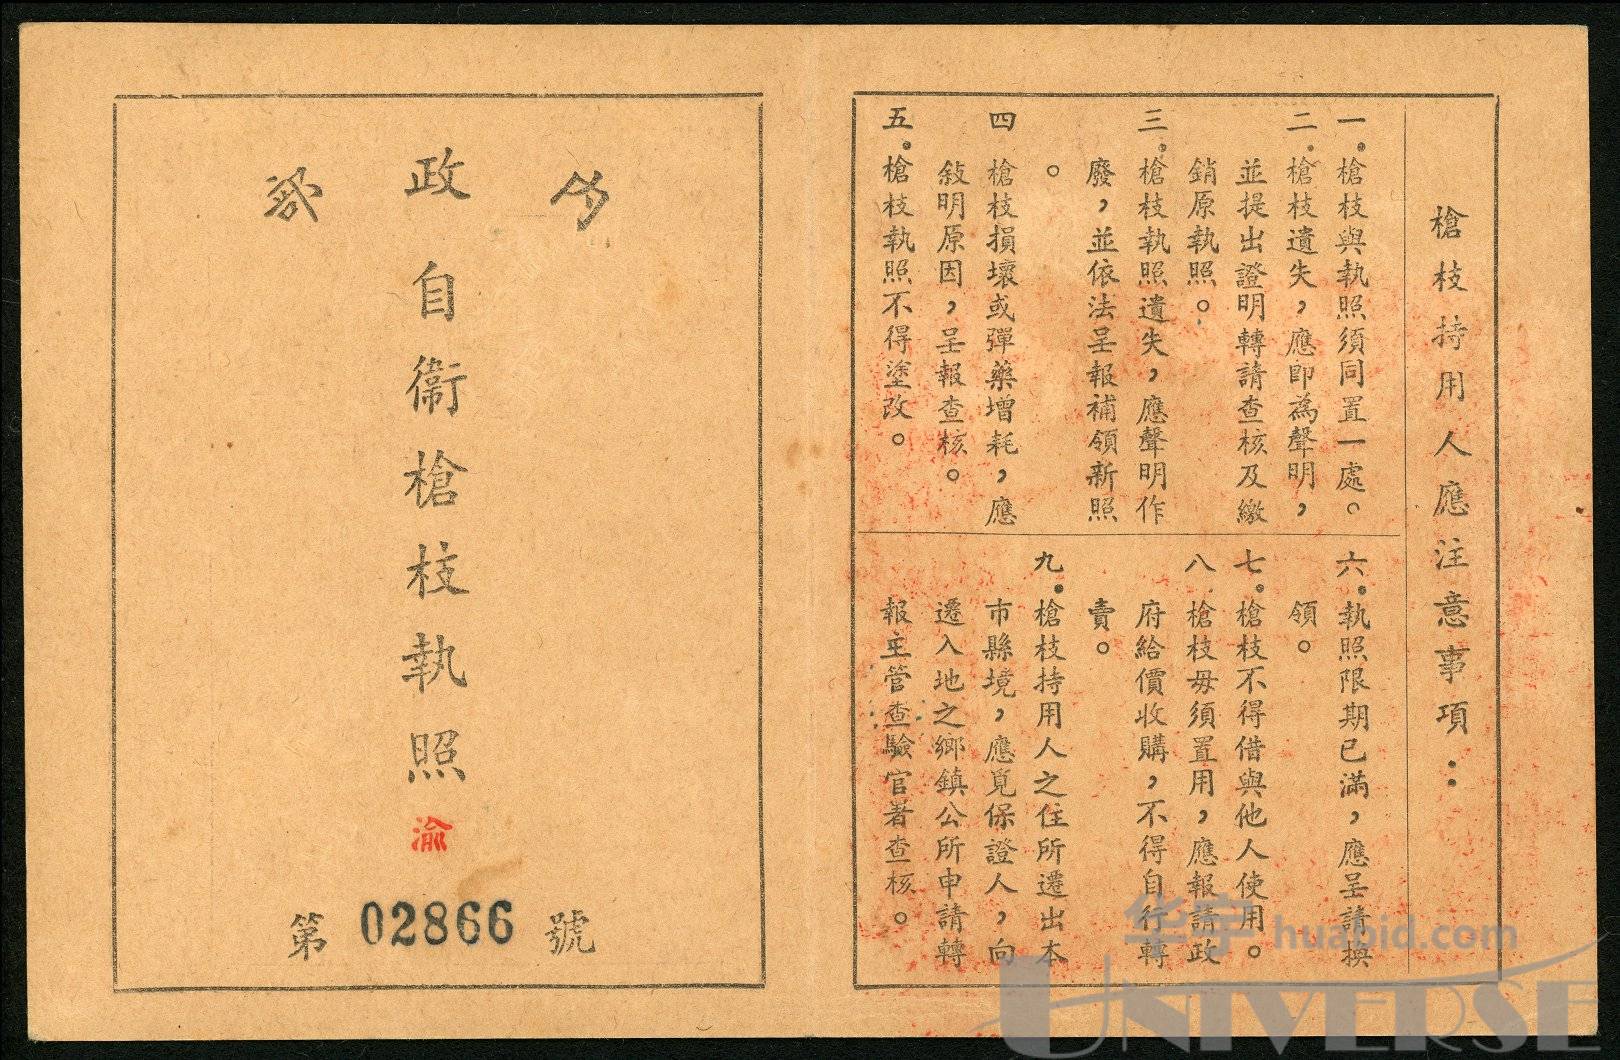 槍枝持用人應注意事項：
一．槍枝與執照須同置一處。
二．槍枝遺失，應即為聲明，
並提出證明轉請查核及繳
銷原執照。
三．槍枝執照遺失，應聲明作
廢，並依法呈報補領新照
。
四 槍枝損壞或彈藥增耗，應
敍明原因，呈報查核。
五．槍枝執照不得塗改。
六．執照限期已滿，應呈請換
領。
七．槍枝不得借與他人使用。
八 槍枝毋須置用，應報請政
府給價收購，不得自行轉
賣。
九．槍枝持用人之住所遷出本
市縣境，應覓保證人，向
遷入地之鄉鎮公所申請轉
報主管查驗官署查核。
內政部
自衛槍枝執照
渝
第 02866 號
华宇 huabid.com
UNIVERSE